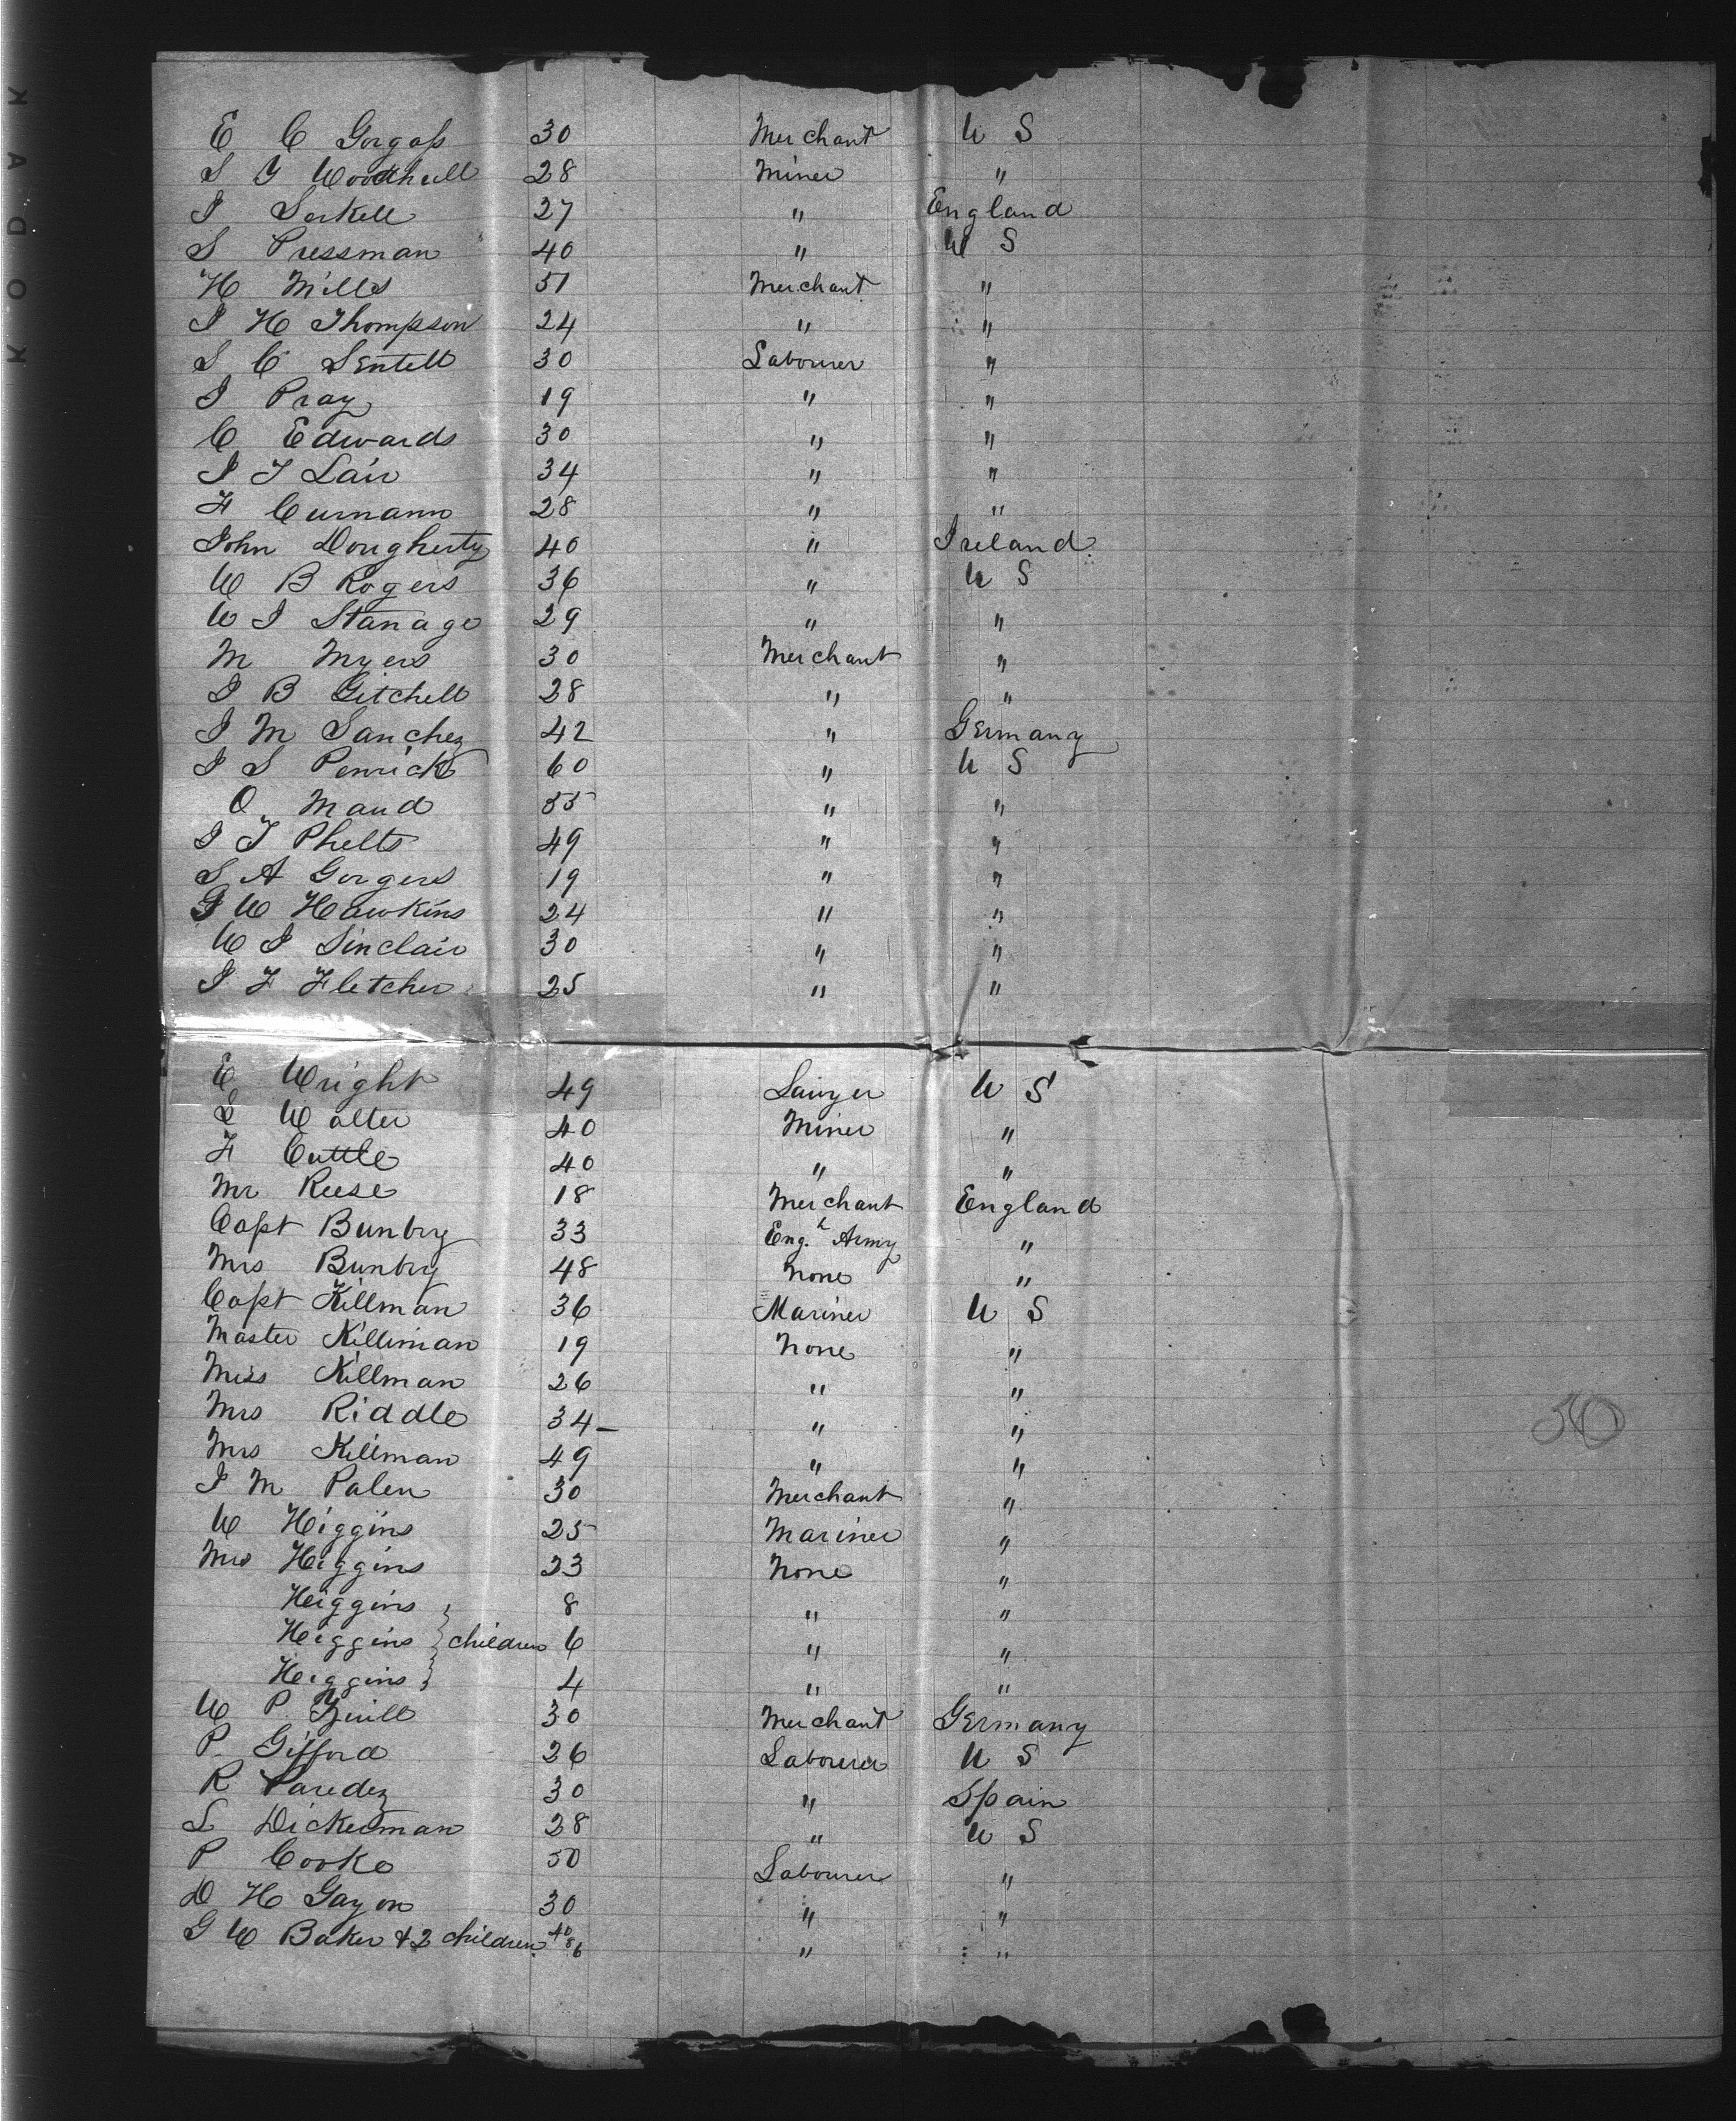 E C Gorgass 30 Merchant U S
S Y Woodhull 28 Miner "
J Serkell 27 " England
S Pressman 40 " U S
H Mills 51 Merchant "
J H Thompson 24 " "
S C Sentell 30 Labourer "
J Pray 19 " "
C Edwards 30 " "
J T Lair 34 " "
F Curnann 28 " "
John Dougherty 40 " Ireland
W B Rogers 36 " U S
W J Stanage 29 " "
M Myers 30 Merchant "
J B Gitchell 28 " "
J M Sanchez 42 " Germany
J S Penrick 60 " U S
O Maud 55 " "
J T Phelts 49 " "
S A Gorgers 19 " "
G W Hawkins 24 " "
W J Sinclair 30 " "
J F Fletcher 25 " "
E Wright 49 Lawyer U S
L Walter 40 Miner "
F Cuttle 40 " "
Mr Reese 18 Merchant England
Capt Bunbry 33 Eng.h Army "
Mrs Bunbry 48 None "
Capt Killman 36 Mariner U S
Master Killiman 19 None "
Miss Killman 26 " "
Mrs Riddle 34 " "
Mrs Killman 49 " "
J M Palen 30 Merchant "
W Higgins 25 Mariner "
Mrs Higgins 23 None "
Higgins 8 " "
Higgins } children 6 " "
Higgins 4 " "
W P 30 Merchant Germany
P. Gifford 26 Labourer U S
R Paredez 30 " Spain
L Dickerman 28 " U S
P Cooke 50 Labourer "
D H Gayon 30 " "
G W Baker & 2 children 40 8 6 " "
50
KODAK